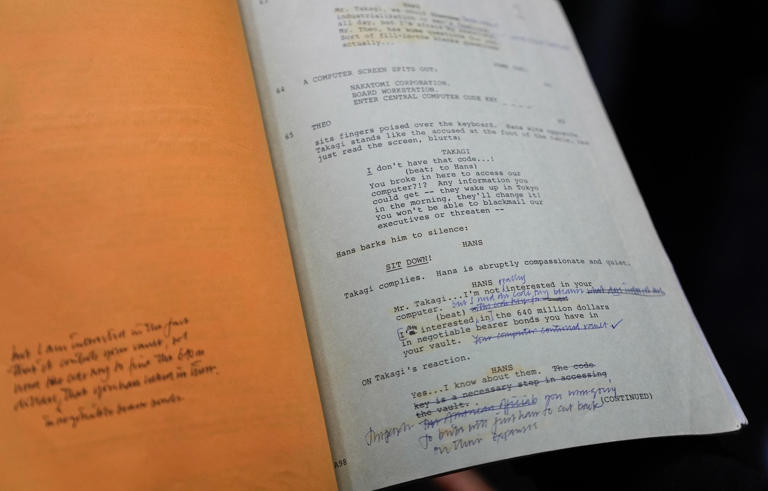 but I am interested in the fact
that it controls your vault,
dollars that you have locked in there.
in negotiable bearer bonds.
HANS
Mr. Takagi, we
industrialization
all day, but I'm
Mr. Theo, has some questions
sort of fill-in-the blanks questions
actually...
64 A COMPUTER SCREEN SPITS OUT:
NAKATOMI CORPORATION.
BOARD WORKSTATION.
ENTER CENTRAL COMPUTER CODE KEY _ _ _ _ _
65 THEO
sits fingers poised over the keyboard. Hans sits opposite.
Takagi stands like the accused at the foot of the table, the
just read the screen, blurts:
TAKAGI
I don't have that code...!
(beat; to Hans)
You broke in here to access our
computer?!? Any information you
could get -- they wake up in Tokyo
in the morning, they'll change it!
You won't be able to blackmail our
executives or threaten --
Hans barks him to silence:
HANS
SIT DOWN!
Takagi complies. Hans is abruptly compassionate and quiet.
HANS really
Mr. Takagi...I'm not interested in your
computer. but I need the code key because
(beat)
I'm interested in the 640 million dollars
in negotiable bearer bonds you have in
your vault. Your computer controlled vault ✓
ON Takagi's reaction.
HANS
Yes...I know about them. The code
key is a necessary step in accessing
the vault.
(CONTINUED)
to cut back
on their expenses
A98